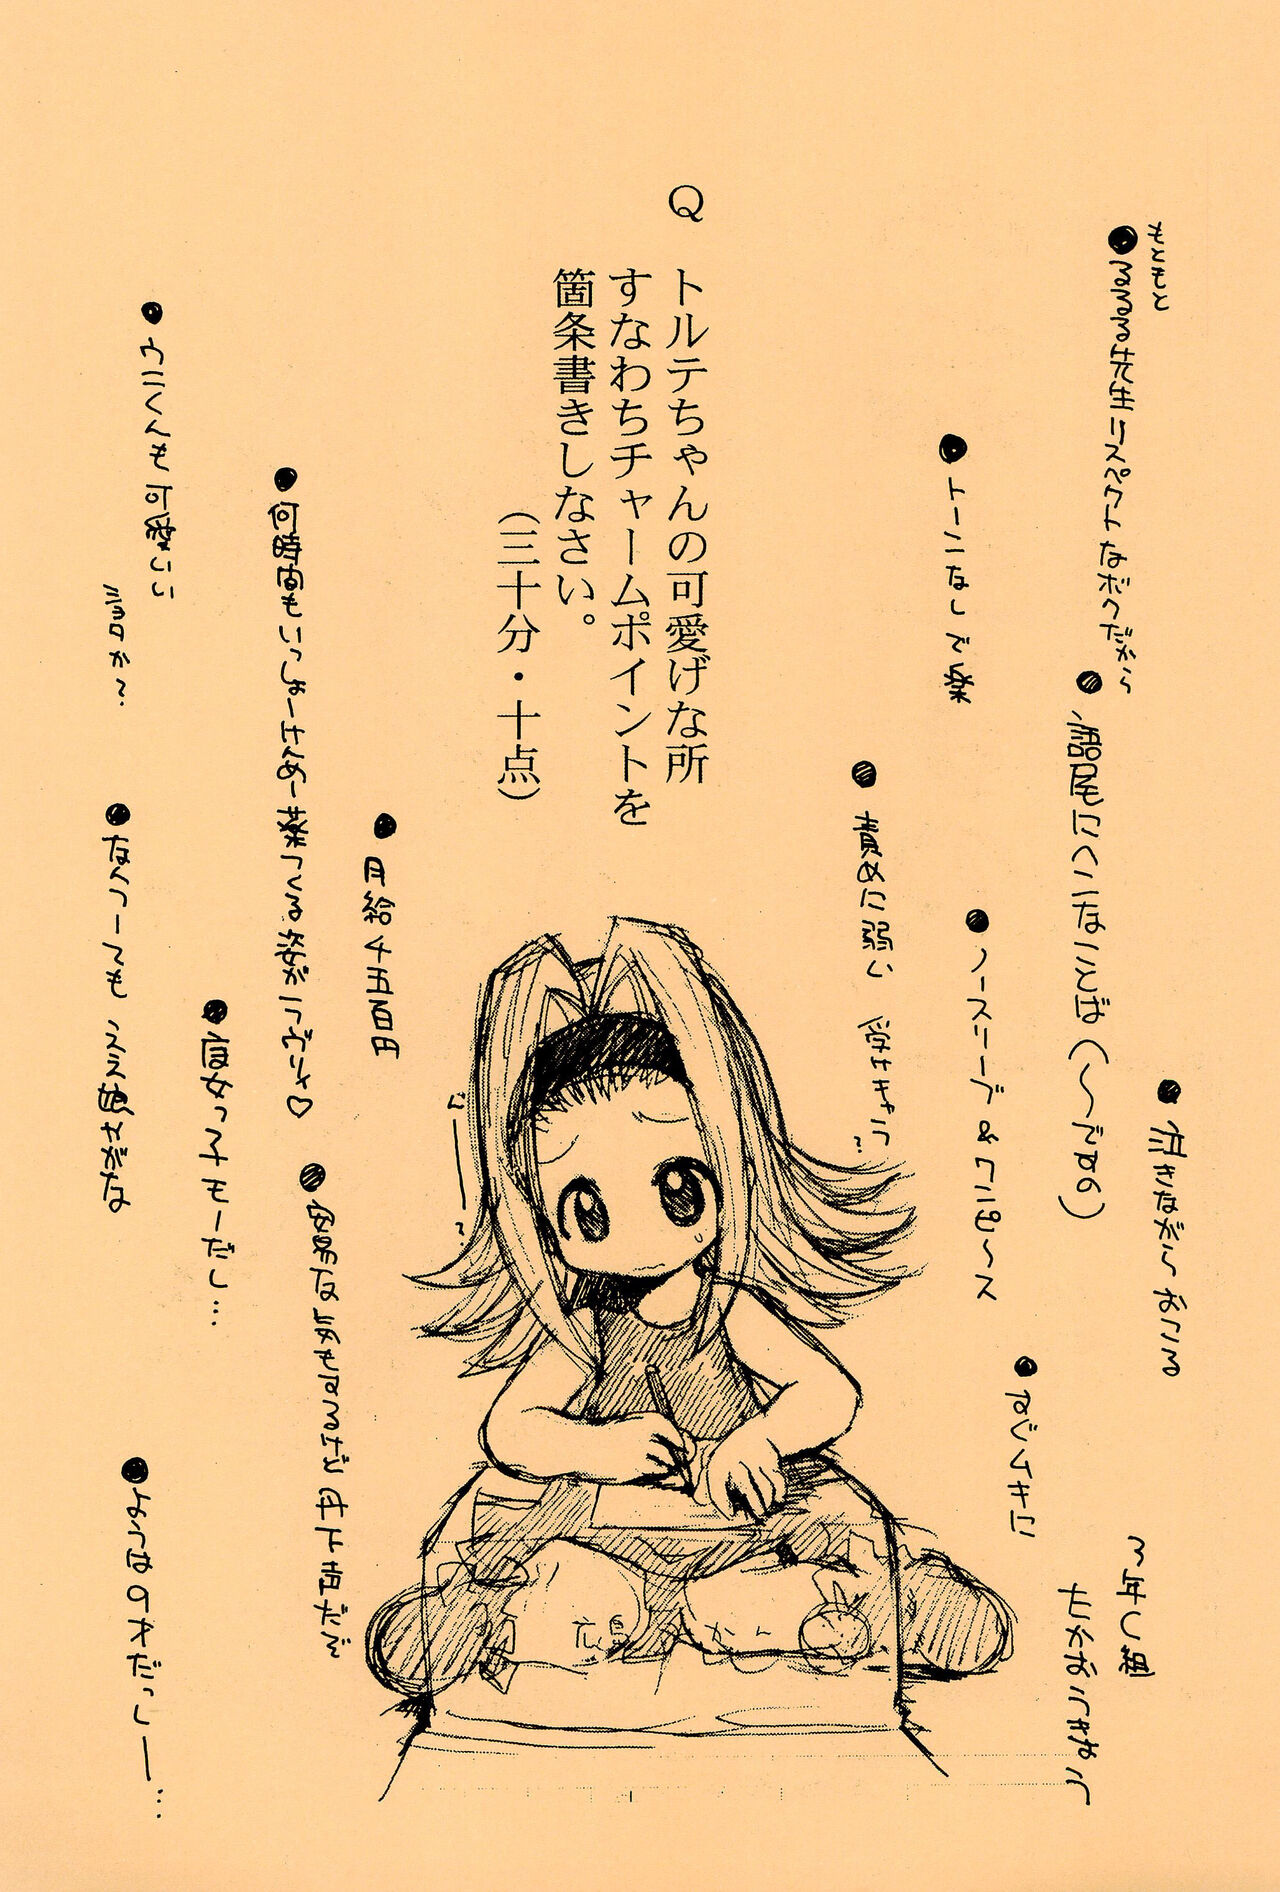 Q　トルテちゃんの可愛げな所
すなわちチャームポイントを
箇条書きしなさい。
（三十分・十点）
もともと
●るるる先生リスペクトなボクだから
●語尾にへンなことば（〜ですの）
●泣きながらおこる
●トーンなしで楽
●ノースリーブ＆ワンピ〜ス
●責めに弱い　受けキャラ？
3年C組
●月給千五百円
●何時間もいっしょーけんめー薬つくる姿がラヴリィ♡
●安易な気もするけど丹下声だぞ
●魔女っ子モーだし…
●ウニくんも可愛いい
ショタか？
●なんつーてもええ娘さがな
●ようはのォだっしー…
広島みかん